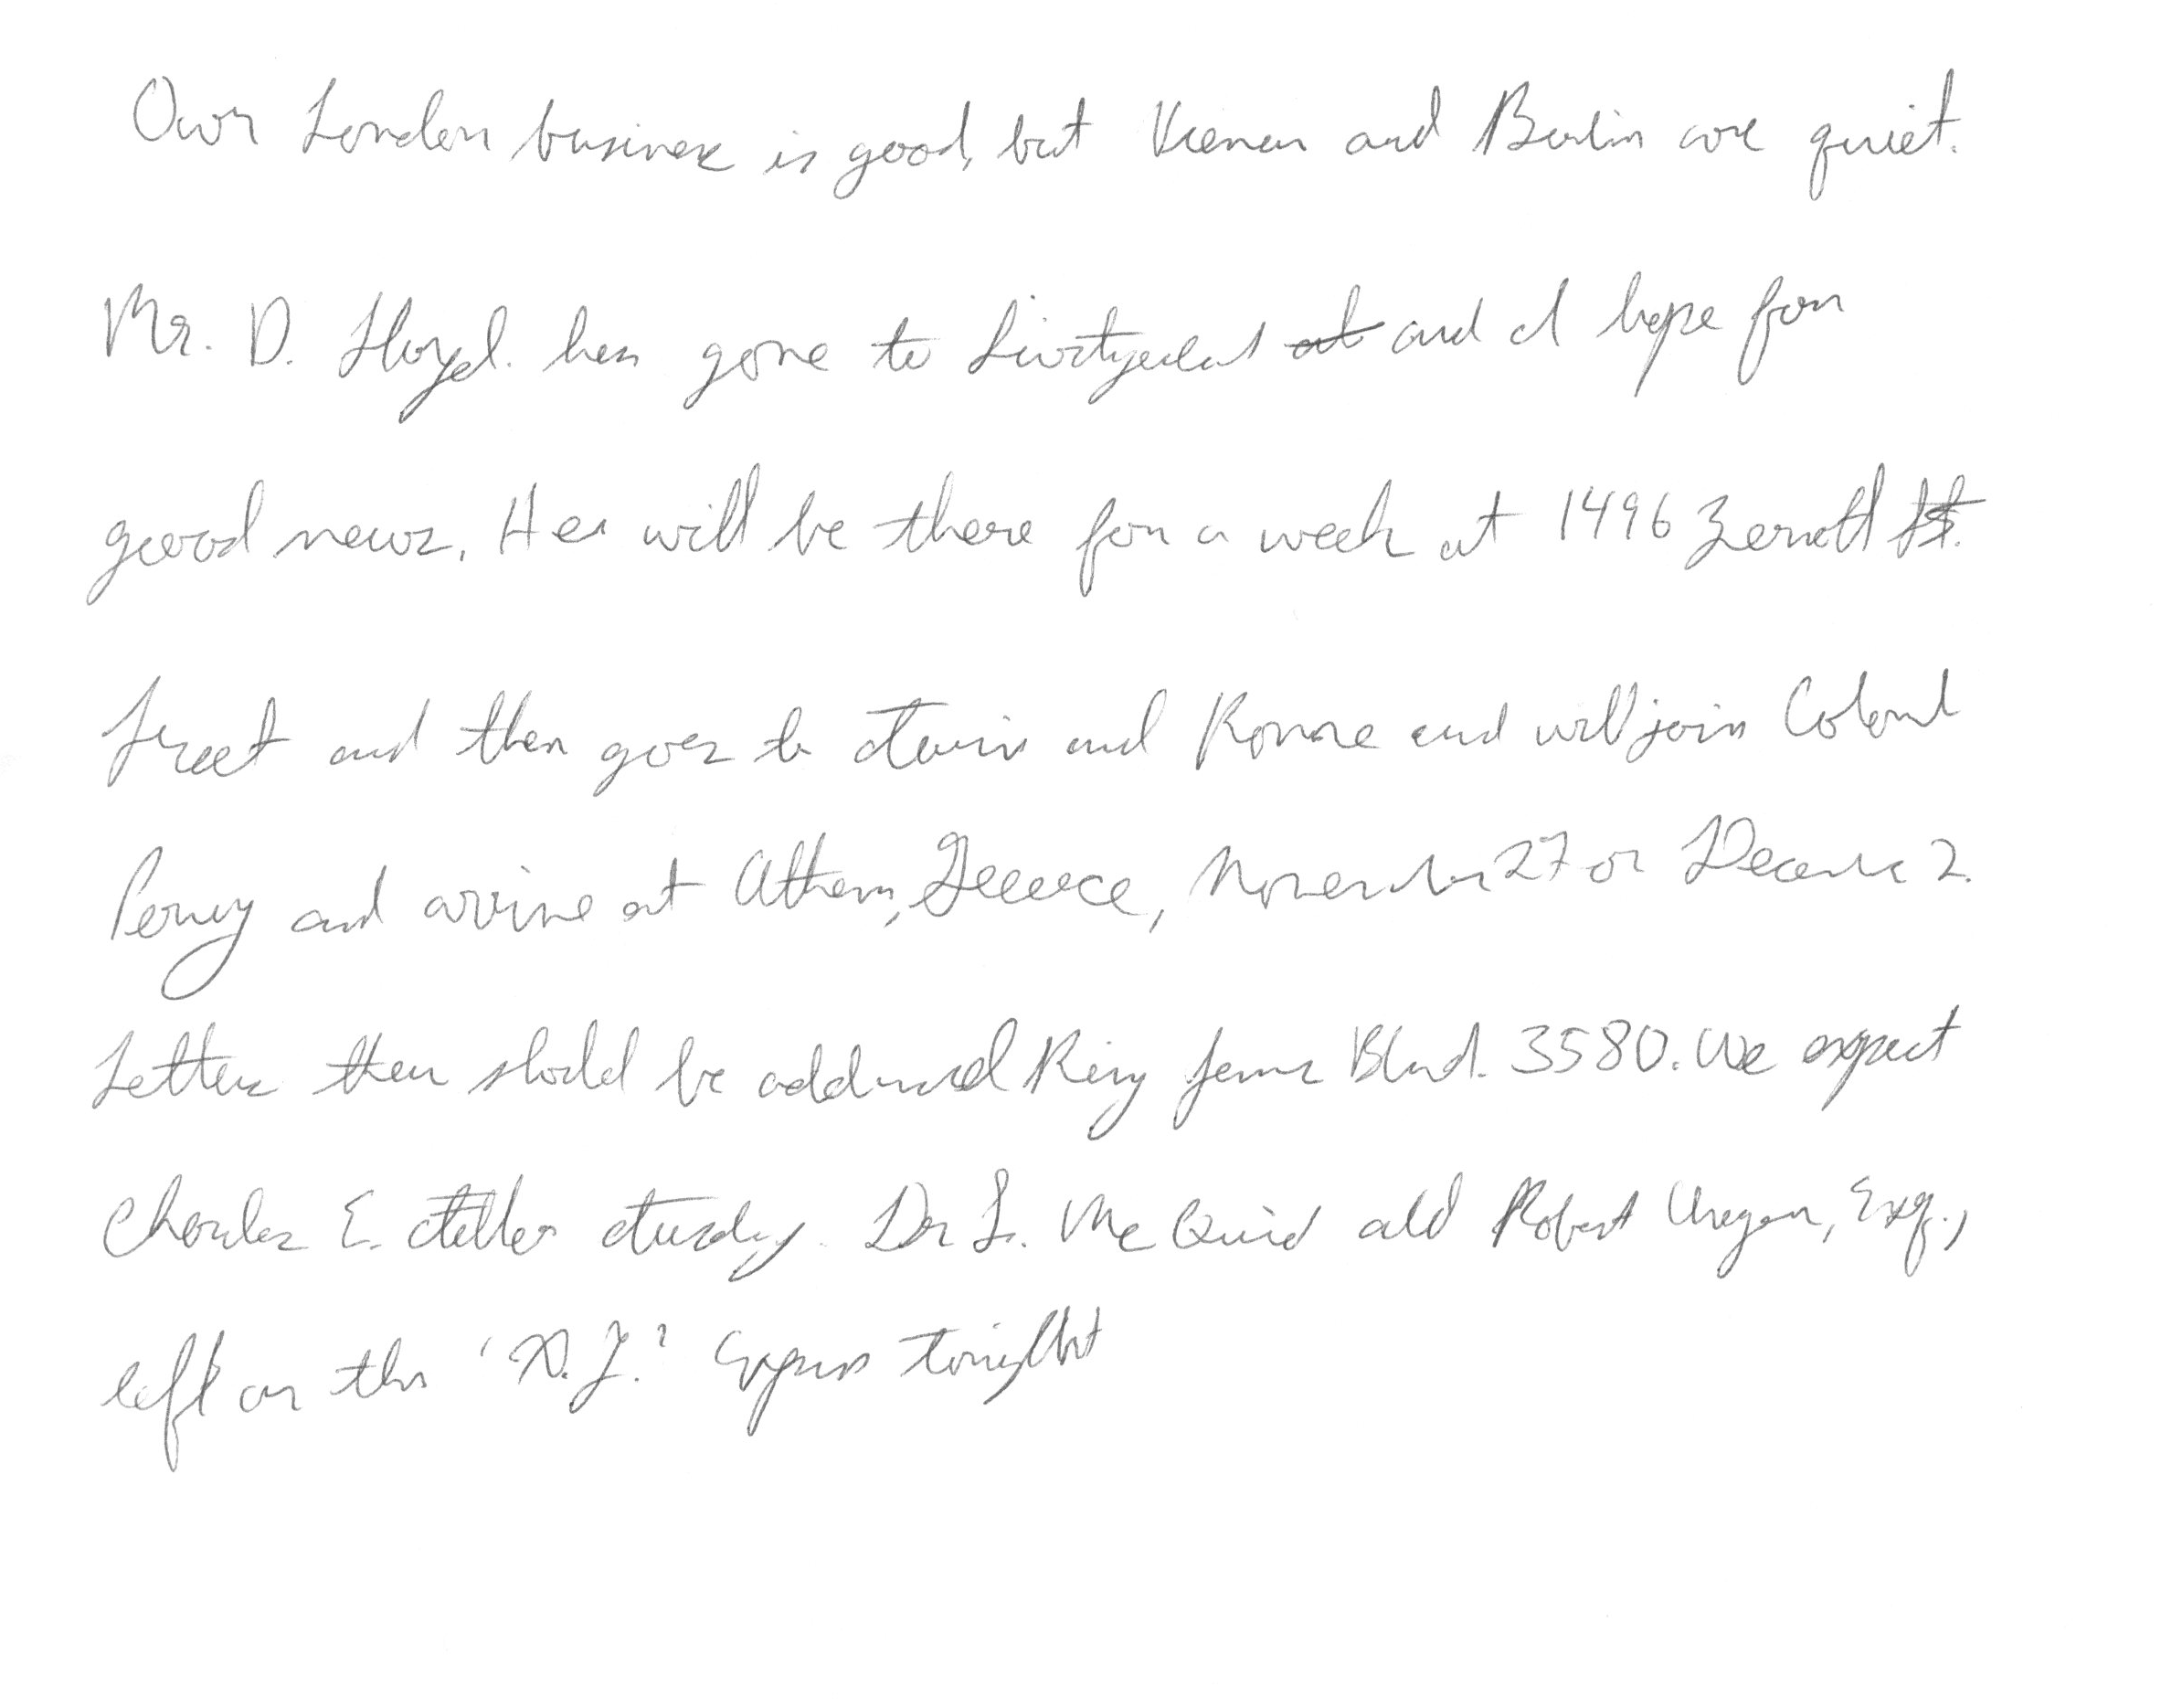 Our London business is good, but Vienna and Berlin are quiet.
Mr. D. Lloyd. has gone to and I hope for
good news. He will be there for a week at 1496 Zermott St.
Street and then goes to Turin and Rome and will join Colonel
Perry and arrive at Athens, Greece, November 27 or December 2.
Letters there should be addressed King James Blvd. 3580. We expect
Charles E. Teller Tuesday. Dr L. McQuid and Robert Unger, Esq.,
left on the 'X.Y.' Express tonight